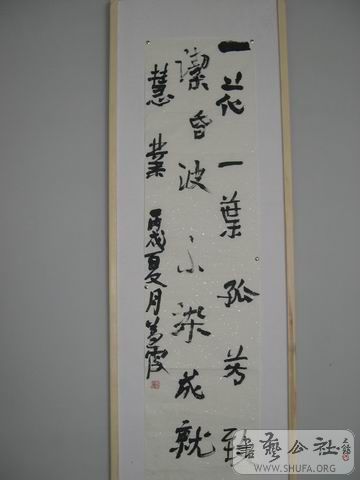 一花一葉孤芳致
潔昏波不染成就
慧業 丙戌夏月霞
藝公社
WWW.SHUFA.ORG